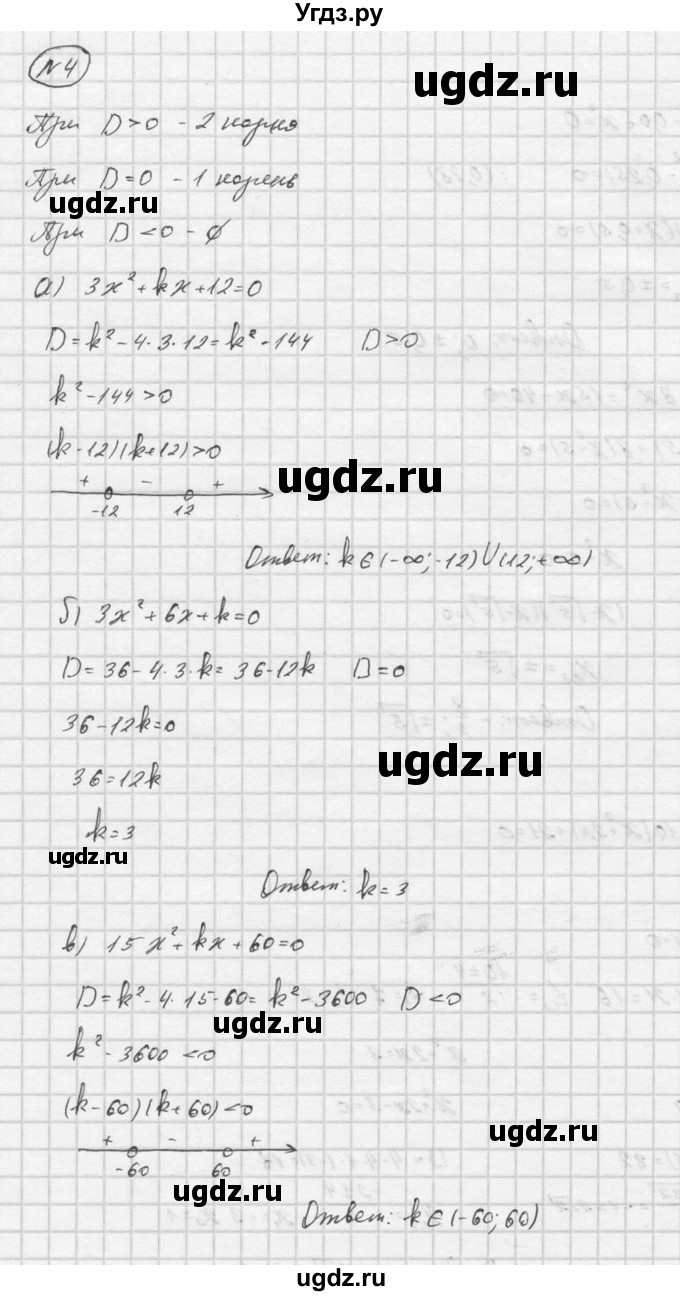 Угдз.ру
№4
ugdz.ru
При D>0 - 2 корня
При D=0 - 1 корень
ugdz.ru
При D<0 - ∅
а) 3x²+kx+12=0
D=k²-4·3·12=k²-144 D>0
k²-144>0
(k-12)(k+12)>0
ugdz.ru
+ - +
-12 12
Ответ: k∈(-∞;-12)∪(12;+∞)
б) 3x²+6x+k=0
D=36-4·3·k=36-12k D=0
36-12k=0
ugdz.ru
36=12k
k=3
ugdz.ru
Ответ: k=3
в) 15x²+kx+60=0
D=k²-4·15·60=k²-3600 D<0
ugdz.ru
k²-3600<0
(k-60)(k+60)<0
ugdz.ru
+ - +
-60 60
ugdz.ru
Ответ: k∈(-60;60)
ugdz.ru